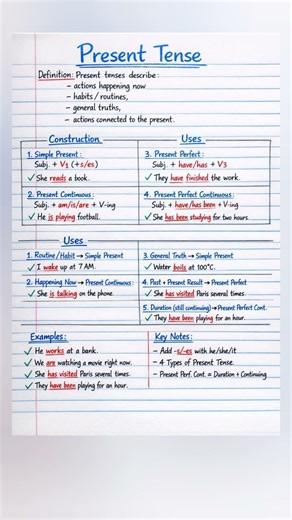 Present Tense
Definition: Present tenses describe:
– actions happening now
– habits / routines,
– general truths,
– actions connected to the present.
Construction
Uses
1. Simple Present:
Subj. + V1 (+s/es)
✓ She reads a book.
3. Present Perfect:
Subj. + have/has + V3
✓ They have finished the work.
2. Present Continuous:
Subj. + am/is/are + V-ing
✓ He is playing football.
4. Present Perfect Continuous:
Subj. + have/has been + V-ing
✓ She has been studying for two hours.
Uses
1. Routine / Habit → Simple Present
✓ I wake up at 7 AM.
2. Happening Now → Present Continuous:
✓ She is talking on the phone.
3. General Truth → Simple Present
✓ Water boils at 100°C.
4. Past + Present Result → Present Perfect
✓ She has visited Paris several times.
5. Duration (still continuing) → Present Perfect Cont.
✓ They have been playing for an hour.
Examples:
✓ He works at a bank.
✓ We are watching a movie right now.
✓ She has visited Paris several times.
✓ They have been playing for an hour.
Key Notes:
– Add -s/-es with he/she/it
– 4 Types of Present Tense
– Present Perf. Cont. = Duration + Continuing